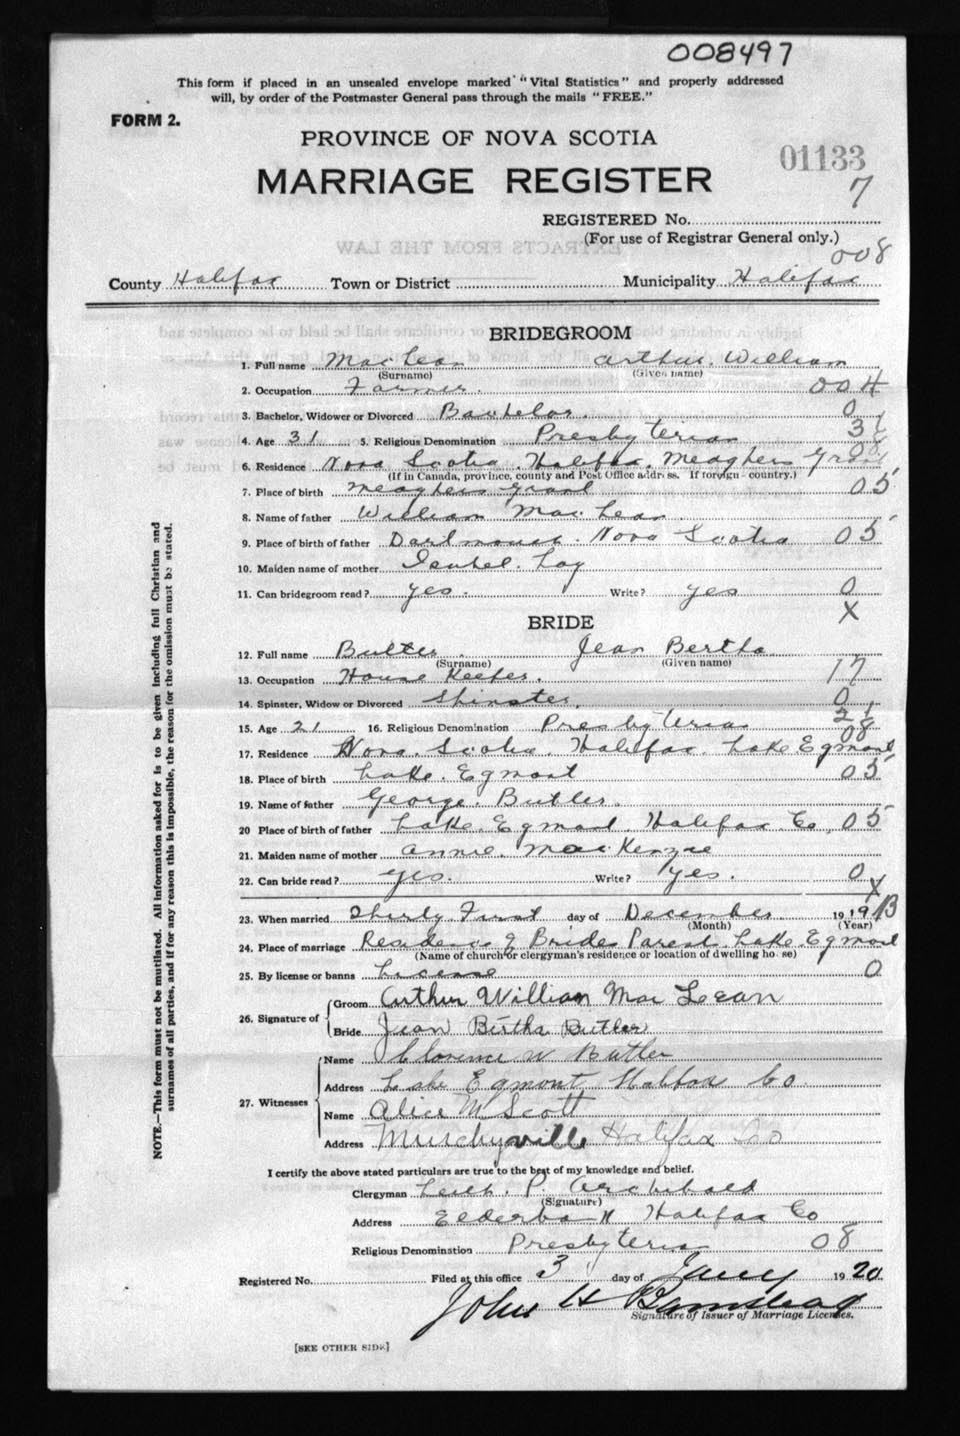 008497
This form if placed in an unsealed envelope marked "Vital Statistics" and properly addressed
will, by order of the Postmaster General pass through the mails "FREE."
FORM 2.
PROVINCE OF NOVA SCOTIA
01133
MARRIAGE REGISTER
7
REGISTERED No.
(For use of Registrar General only.)
008
County Halifax Town or District Municipality Halifax
BRIDEGROOM
1. Full name MacLean Arthur William
(Surname) (Given name)
2. Occupation Farmer. 004
3. Bachelor, Widower or Divorced Bachelor. 0
4. Age 31 5. Religious Denomination Presbyterian
6. Residence Nova Scotia. Halifax. Meaghers Grant
(If in Canada, province, county and Post Office address. If foreign - country.)
7. Place of birth Meaghers Grant 05
8. Name of father William MacLean
9. Place of birth of father Dartmouth. Nova Scotia 05
10. Maiden name of mother Isabel. Lay
11. Can bridegroom read? yes. Write? yes 0
X
BRIDE
12. Full name Butler Jean Bertha
(Surname) (Given name)
13. Occupation House Keeper. 17
14. Spinster, Widow or Divorced Spinster. 0
15. Age 21 16. Religious Denomination Presbyterian 21
08
17. Residence Nova. Scotia. Halifax. Lake Egmont
18. Place of birth Lake. Egmont 05
19. Name of father George. Butler.
20 Place of birth of father Lake. Egmont. Halifax. Co. 05
21. Maiden name of mother Annie. MacKenzie
22. Can bride read? yes. Write? yes. 0
X
23. When married Thirty First day of December. 1919 13
(Month) (Year)
24. Place of marriage Residence of Brides Parents. Lake. Egmont
(Name of church or clergyman's residence or location of dwelling house)
25. By license or banns License 0
26. Signature of
Groom Arthur William MacLean
Bride Jean Bertha Butler
27. Witnesses
Name Clorence W Butler
Address Lake Egmont Halifax Co.
Name Alice M Scott
Address Murchyville Halifax Co
I certify the above stated particulars are true to the best of my knowledge and belief.
Clergyman P. Archibald
(Signature)
Address Elderbank Halifax Co
Religious Denomination Presbyterian 08
Registered No. Filed at this office 3 day of Jany 1920
John H
Signature of Issuer of Marriage Licenses.
[SEE OTHER SIDE]
NOTE.—This form must not be mutilated. All information asked for is to be given including full Christian and
surnames of all parties, and if for any reason this is impossible, the reason for the omission must be stated.